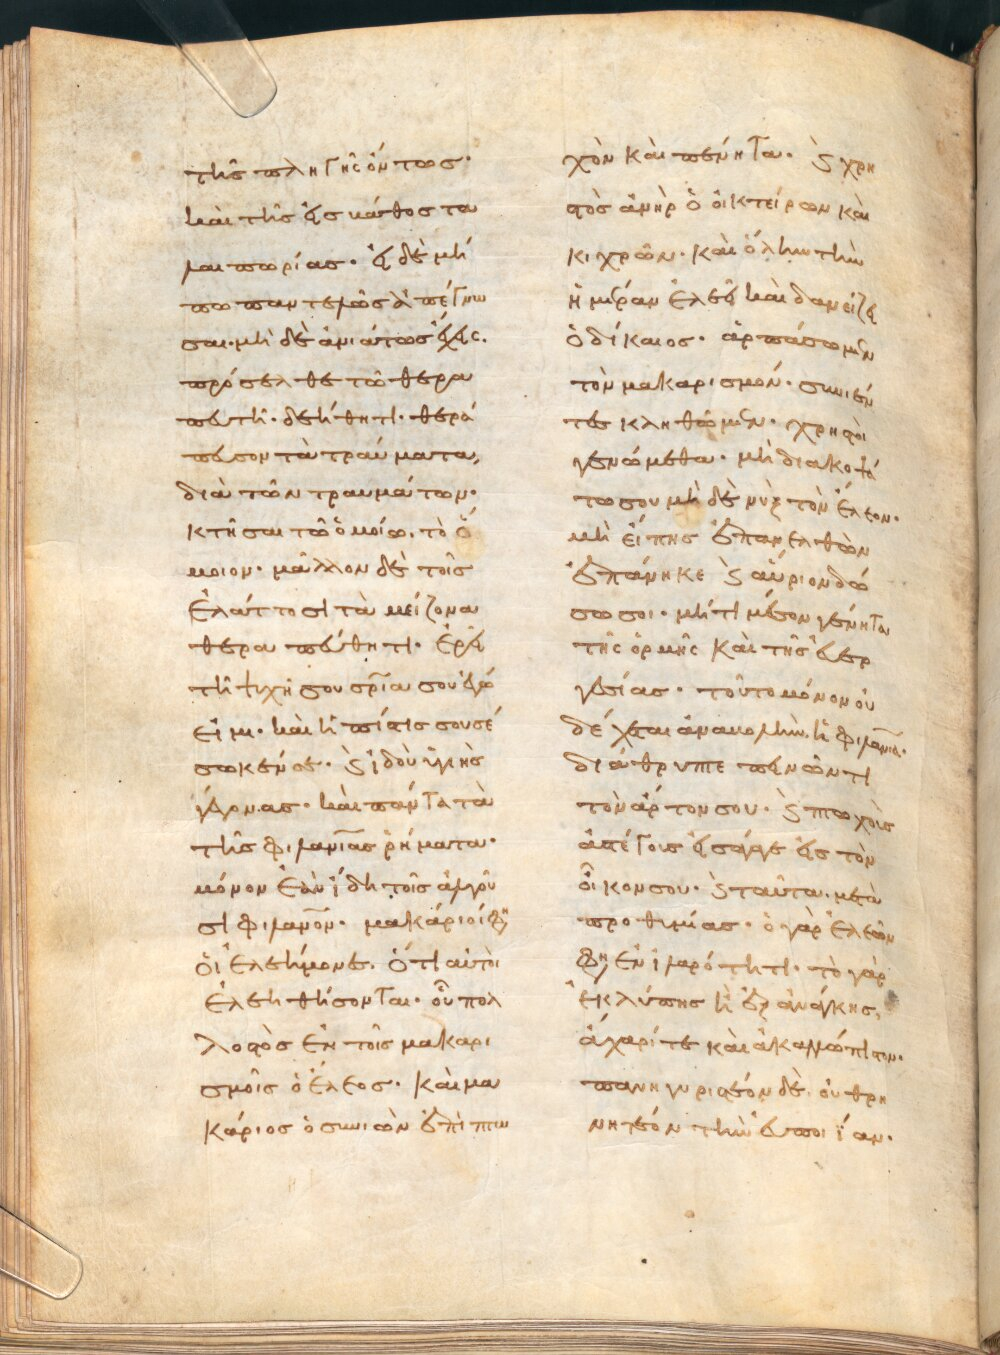 τῆς πληγῆς ὄντως·
καὶ τῆς εἰς βάθος τα
λαιπωρίας· εἰ δὲ μή
πω παντελῶς ἀπέγνω
σαι· μὴ δὲ ἀνιάτως ἔχεις.
πρόσελθε τῶ θερα
πευτῆ· δεήθητι· θερά
πευσον τὰ τραύματα,
διὰ τῶν τραυμάτων·
κτῆσαι τῶ ὁμοίω, τὸ ὅ
μοιον· μᾶλλον δὲ τοῖς
ἐλάττοσι τὰ μείζονα
θεραπεύθητι· ἐρεῖ
τῆ ψυχῆ σου σρία σου ἐγώ
εἰμι· καὶ ἡ πίστις σου σέ
σωκέν σε· καὶ ἰδοὺ ὑγιὴς
γέγονας· καὶ πάντα τὰ
τῆς φιλανίας ῥήματα·
μόνον ἐὰν ἴδη τοῖς ἀλγοῦ
σι φιλανον· μακάριοί φη
οἱ ἐλεήμονες. ὅτι αὐτοὶ
ἐλεηθήσονται· οὐ πολ
λοστὸς ἐν τοῖς μακαρι
σμοῖς ὁ ἔλεος· καὶ μα
κάριος ὁ συνιὼν ἐπὶ πτω
χὸν καὶ πένητα· καὶ χρη
στὸς ἀνὴρ ὁ οἰκτείρων καὶ
κιχρῶν· καὶ ὅλην τὴν
ἡμέραν ἐλεεῖ καὶ δανείζει
ὁ δίκαιος· ἁρπάσωμεν
τὸν μακαρισμόν· συνιέν
τες κληθῶμεν· χρηστοὶ
γενώμεθα· μὴ διακοψά
τω σου μὴ δὲ νὺξ τὸν ἔλεον·
μὴ εἴπης ἐπανελθὼν
ἐπάνηκε καὶ αὔριον δώ
σω σοι· μή τι μέσον γένηται
τῆς ὁρμῆς καὶ τῆς εὐερ
γεσίας· τοῦτο μόνον οὐ
δέχεται ἀναβολὴν ἡ φιλανία·
διάθρυπτε πεινῶντι
τὸν ἄρτον σου· καὶ πτωχοὺς
ἀστέγους εἴσαγε εἰς τὸν
οἶκον σου· καὶ ταῦτα μετὰ
προθυμίας· ὁ γὰρ ἐλεῶν
φη ἐν ἱλαρότητι· τὸ γὰρ
ἐκ λύπης ἢ ἐξ ἀνάγκης,
ἄχαρί τε καὶ ἀκαλλώπιστον·
πανηγυριστέον δὲ, οὐ θρη
νητέον τὴν εὐποιΐαν·